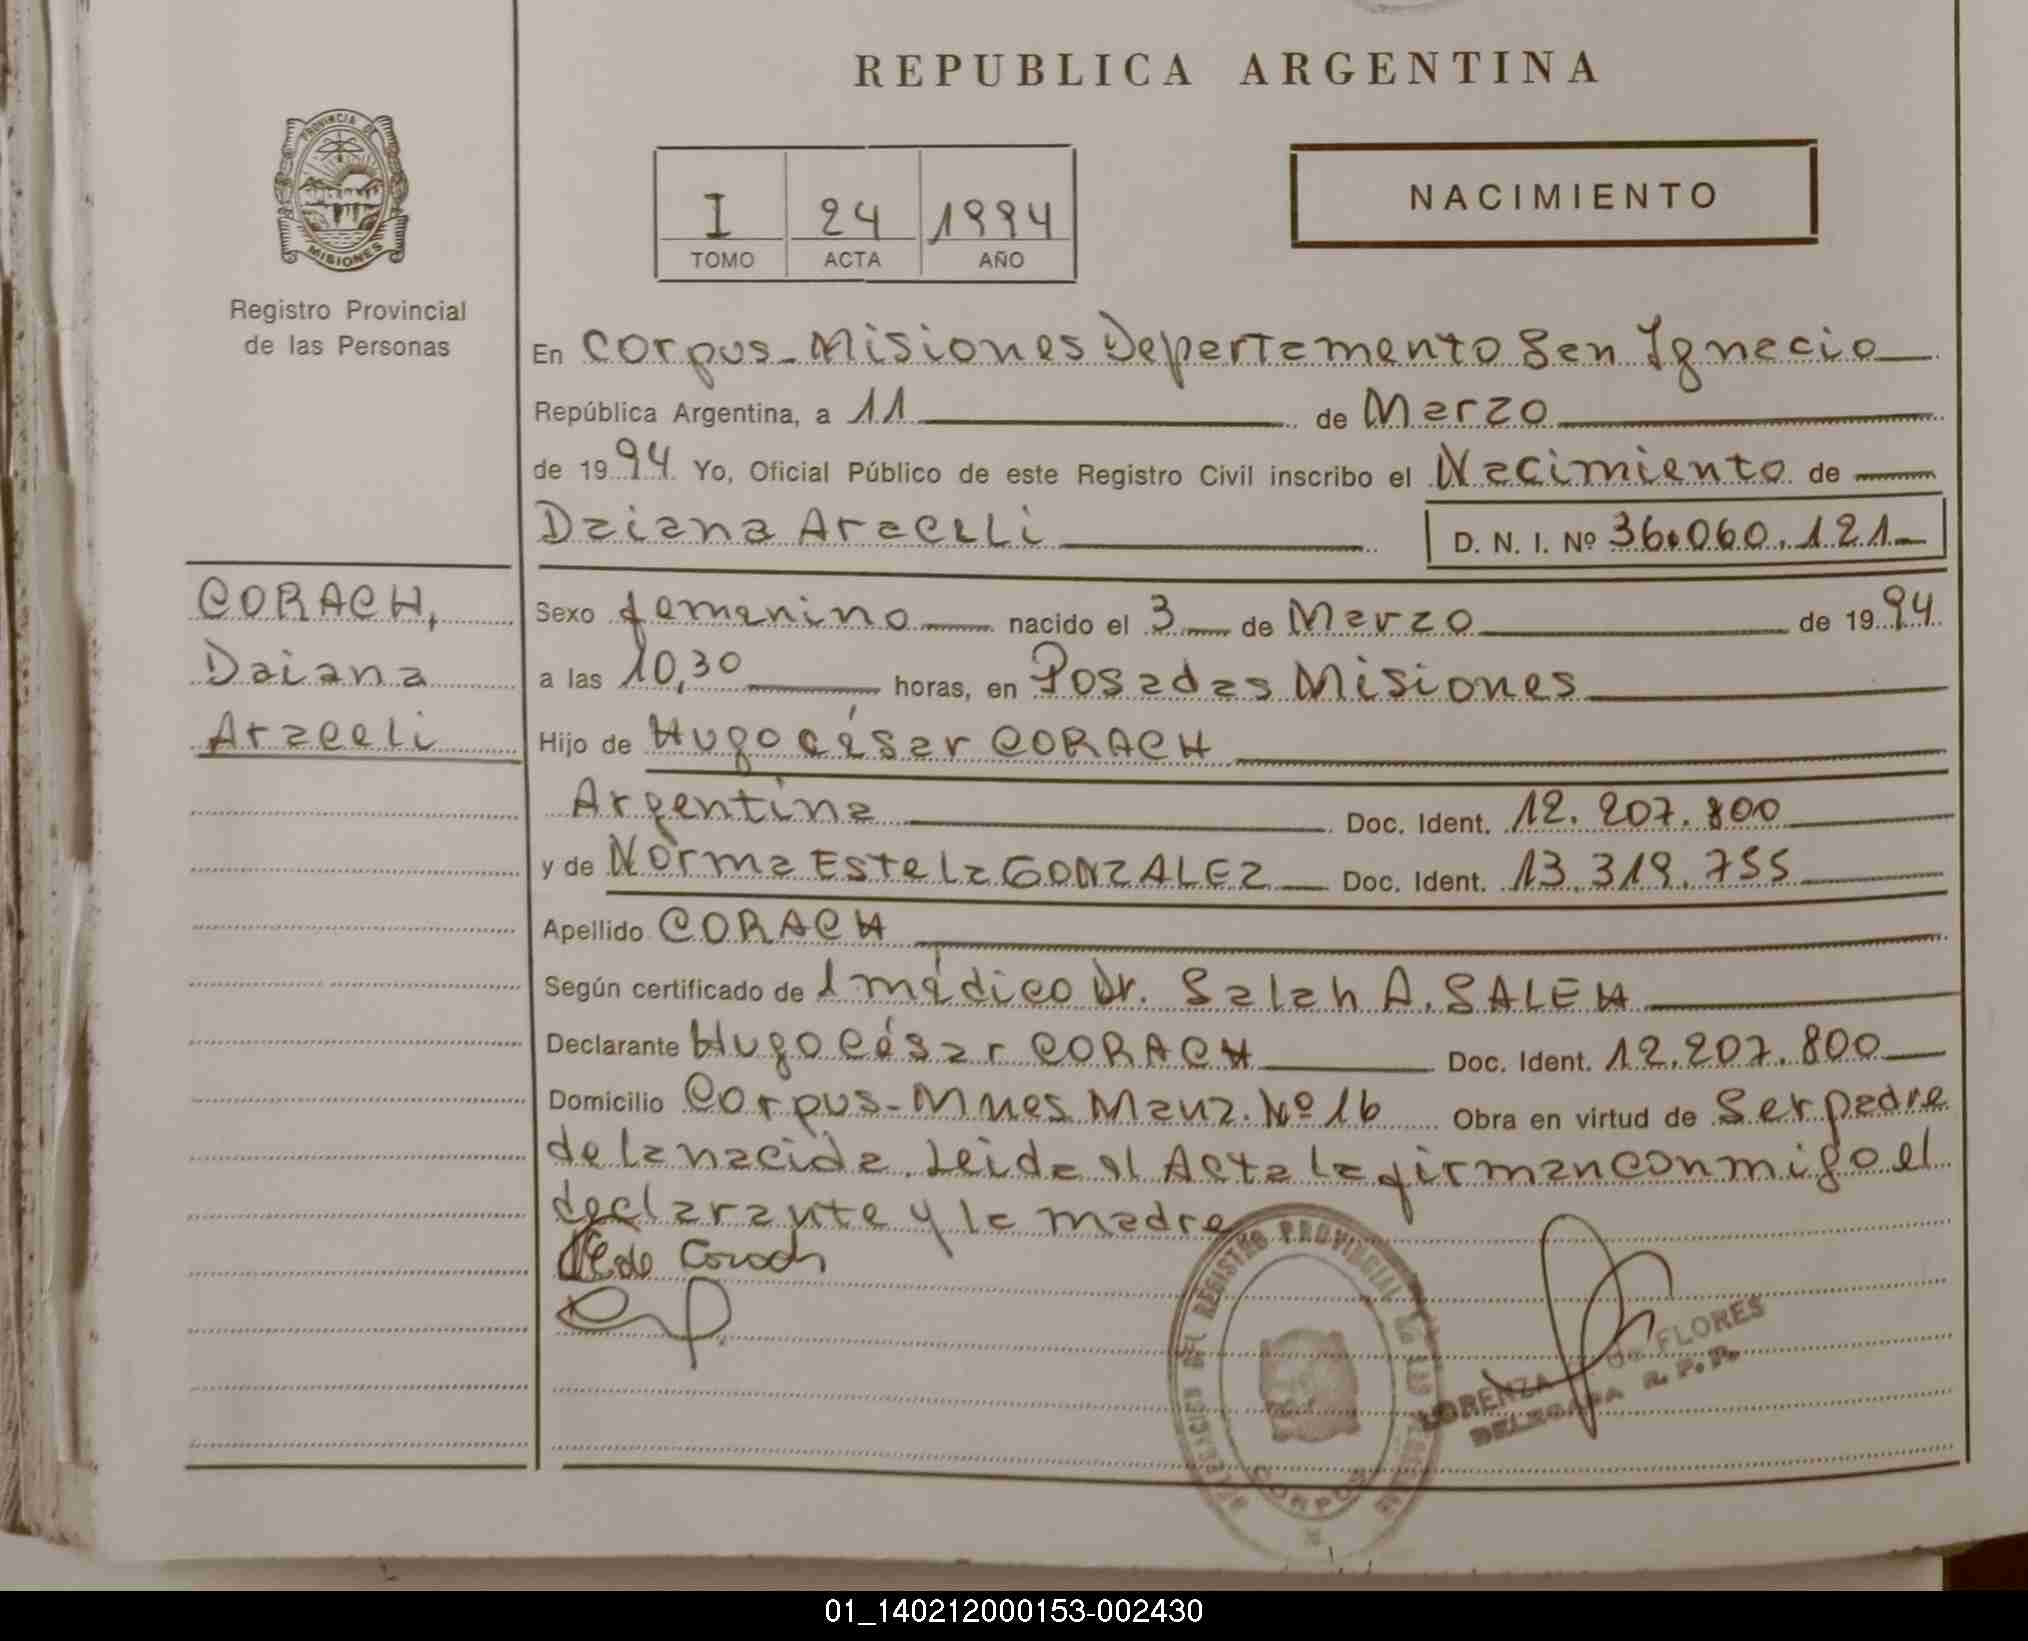 REPUBLICA ARGENTINA
PROVINCIA DE
MISIONES
Registro Provincial
de las Personas
I 24 1994
TOMO ACTA AÑO
NACIMIENTO
En Corpus - Misiones Departamento San Ignacio
República Argentina, a 11 de Marzo
de 1994 Yo, Oficial Público de este Registro Civil inscribo el Nacimiento de
Daiana Araceli D. N. I. Nº 36.060.121
CORACH,
Daiana
Araceli
Sexo femenino nacido el 3 de Marzo de 1994
a las 10,30 horas, en Posadas Misiones
Hijo de Hugo César CORACH
Argentina Doc. Ident. 12.207.800
y de Norma Estela GONZALEZ Doc. Ident. 13.319.755
Apellido CORACH
Según certificado de l médico Dr. Salah A. SALEH
Declarante Hugo César CORACH Doc. Ident. 12.207.800
Domicilio Corpus - Mnes Manz. Nº 16 Obra en virtud de Ser padre
de la nacida. Leida el Acta la firman conmigo el
declarante y la madre
de Corach
DELEGACION DEL REGISTRO PROVINCIAL DE LAS PERSONAS
CORPUS
LORENZA de FLORES
DELEGADA R. P. P.
01_140212000153-002430